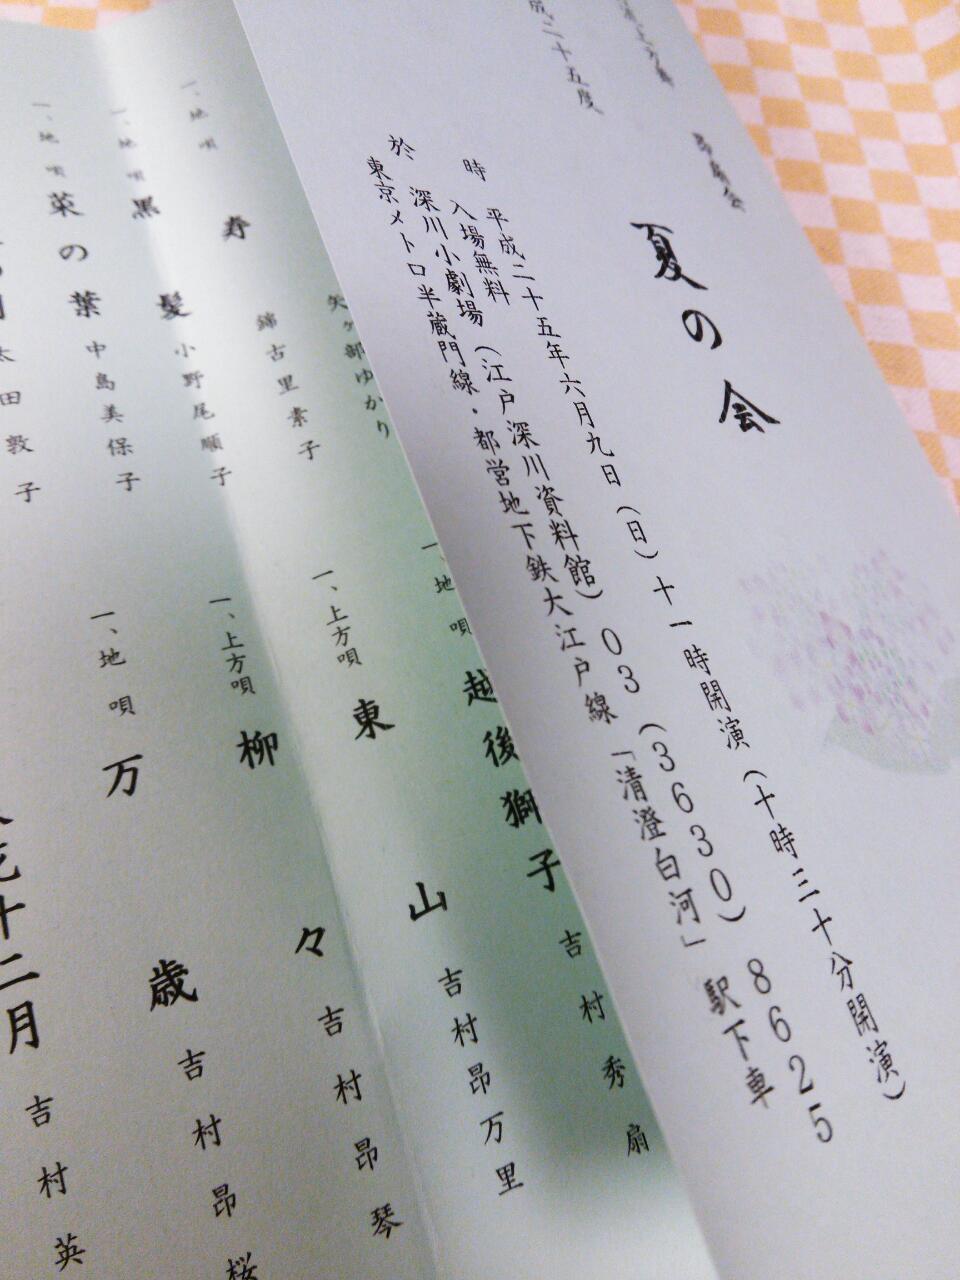 成二十五度
夏の会
時 平成二十五年六月九日（日）十一時開演（十時三十分開演）
入場無料
於 深川小劇場（江戸深川資料館）03（3630）8625
東京メトロ半蔵門線・都営地下鉄大江戸線「清澄白河」駅下車
一、地唄 寿
矢ヶ部ゆかり
錦古里素子
一、地唄 黒髪 小野尾順子
一、地唄 菜の葉 中島美保子
太田敦子
一、地唄 越後獅子 吉村秀扇
一、上方唄 東山 吉村昂万里
一、上方唄 柳々 吉村昂琴
一、地唄 万歳 吉村昂桜
十二月 吉村英